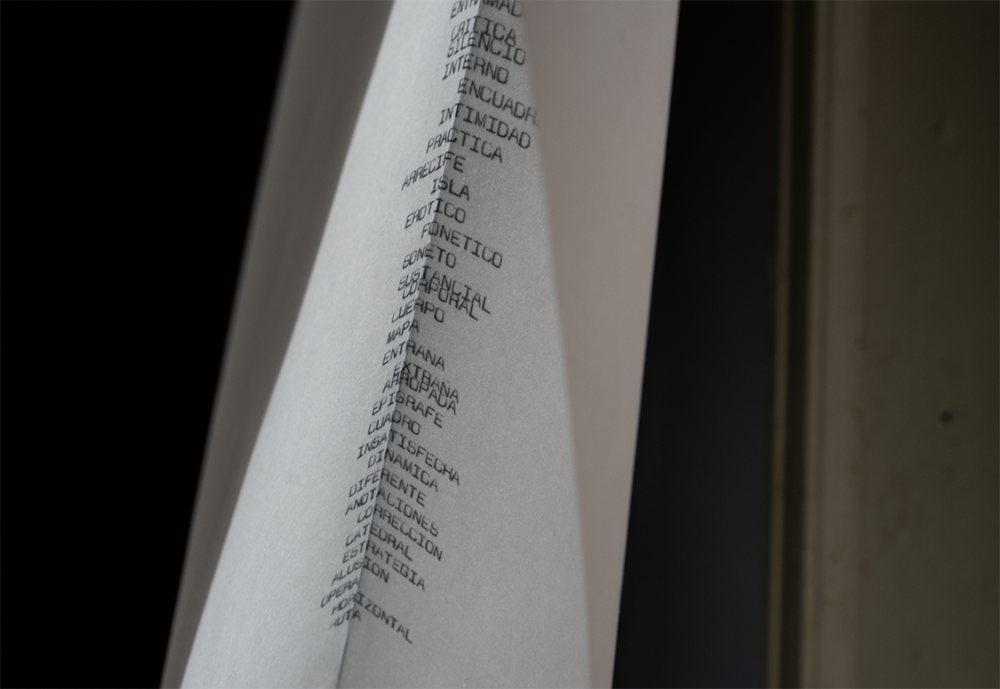 CRITICA
SILENCIO
INTERNO
INTIMIDAD
PRACTICA
ARRECIFE
ISLA
EROTICO
FONETICO
SONETO
SUSTANCIAL
CORPORAL
CUERPO
MAPA
ENTRANA
EXTRANA
ARROPADA
EPIGRAFE
CUADRO
INSATISFECHA
DINAMICA
DIFERENTE
ANOTACIONES
CORRECCION
CATEDRAL
ESTRATEGIA
ALUSION
OPERA
HORIZONTAL